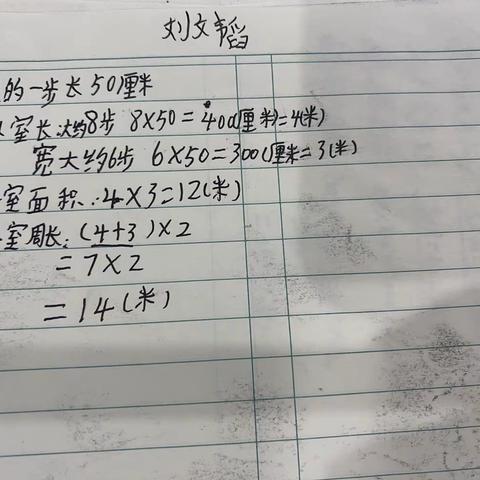 刘文韬
的一步长50厘米
室长:大约8步 8×50=400(厘米)=4(米)
宽大约6步 6×50=300(厘米=3(米)
室面积:4×3=12(米)
室周长:(4+3)×2
=7×2
=14(米)